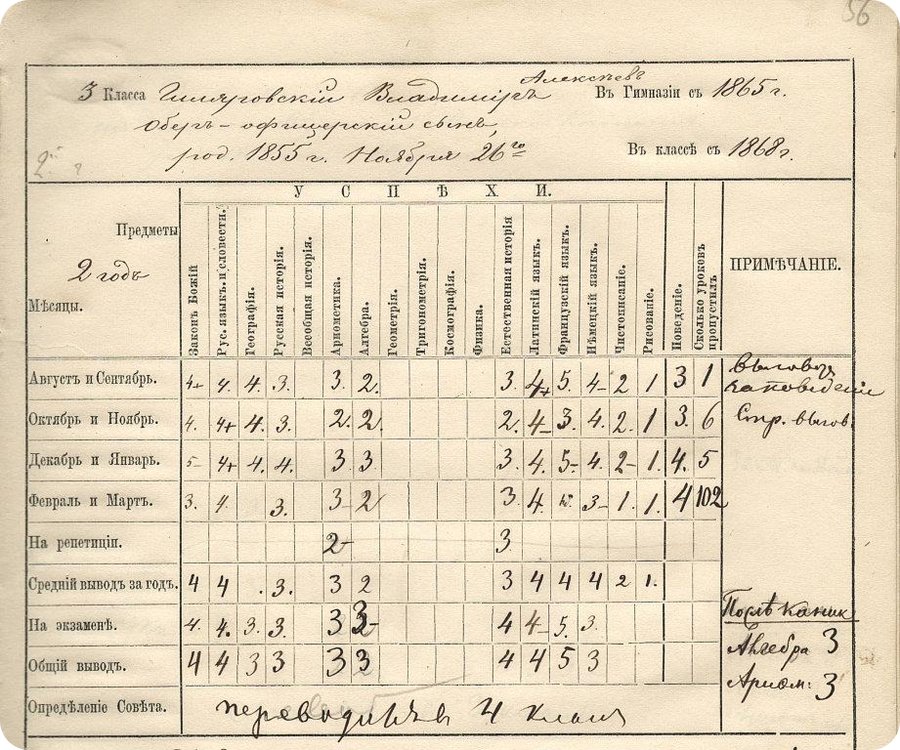 56
3 Класса Гиляровскій Владиміръ Алексѣевъ Въ Гимназіи съ 1865 г.
Оберъ-офицерскій сынъ,
род. 1855 г. Ноября 26го Въ классѣ съ 1868 г.
УСПѢХИ.
Предметы
2 годъ
Мѣсяцы.
Законъ Божій
Рус. языкъ. и словестн.
Географія.
Русская исторія.
Всеобщая исторія.
Ариѳметика.
Алгебра.
Геометрія.
Тригонометрія.
Космографія.
Физика.
Естественная исторія
Латинскій языкъ.
Французскій языкъ.
Нѣмецкій языкъ.
Чистописаніе.
Рисованіе.
Поведеніе.
Сколько уроковъ пропустилъ
ПРИМѢЧАНІЕ.
Августъ и Сентябрь. 4+ 4. 4. 3. 3. 2. 3. 4+ 5. 4- 2 1 3 1
Октябрь и Ноябрь. 4. 4+ 4. 3. 2. 2. 2. 4- 3. 4. 2. 1 3. 6 Стр. выгов.
Декабрь и Январь. 5- 4+ 4. 4. 3 3. 3. 4. 5- 4. 2- 1. 4. 5
Февраль и Мартъ. 3. 4. 3. 3- 2 3. 4. 3- 1. 1. 4 102
На репетиціи. 2- 3
Средній выводъ за годъ. 4 4 . 3. 3 2 3 4 4 4 2 1.
На экзаменѣ. 4. 4. 3. 3. 3 3- 4 4- 5. 3. Послѣ каник
Общій выводъ. 4 4 3 3 3 3 4 4 5 3 Алгебра 3
Ариѳм: 3
Опредѣленіе Совѣта. переводитъ въ 4 классъ